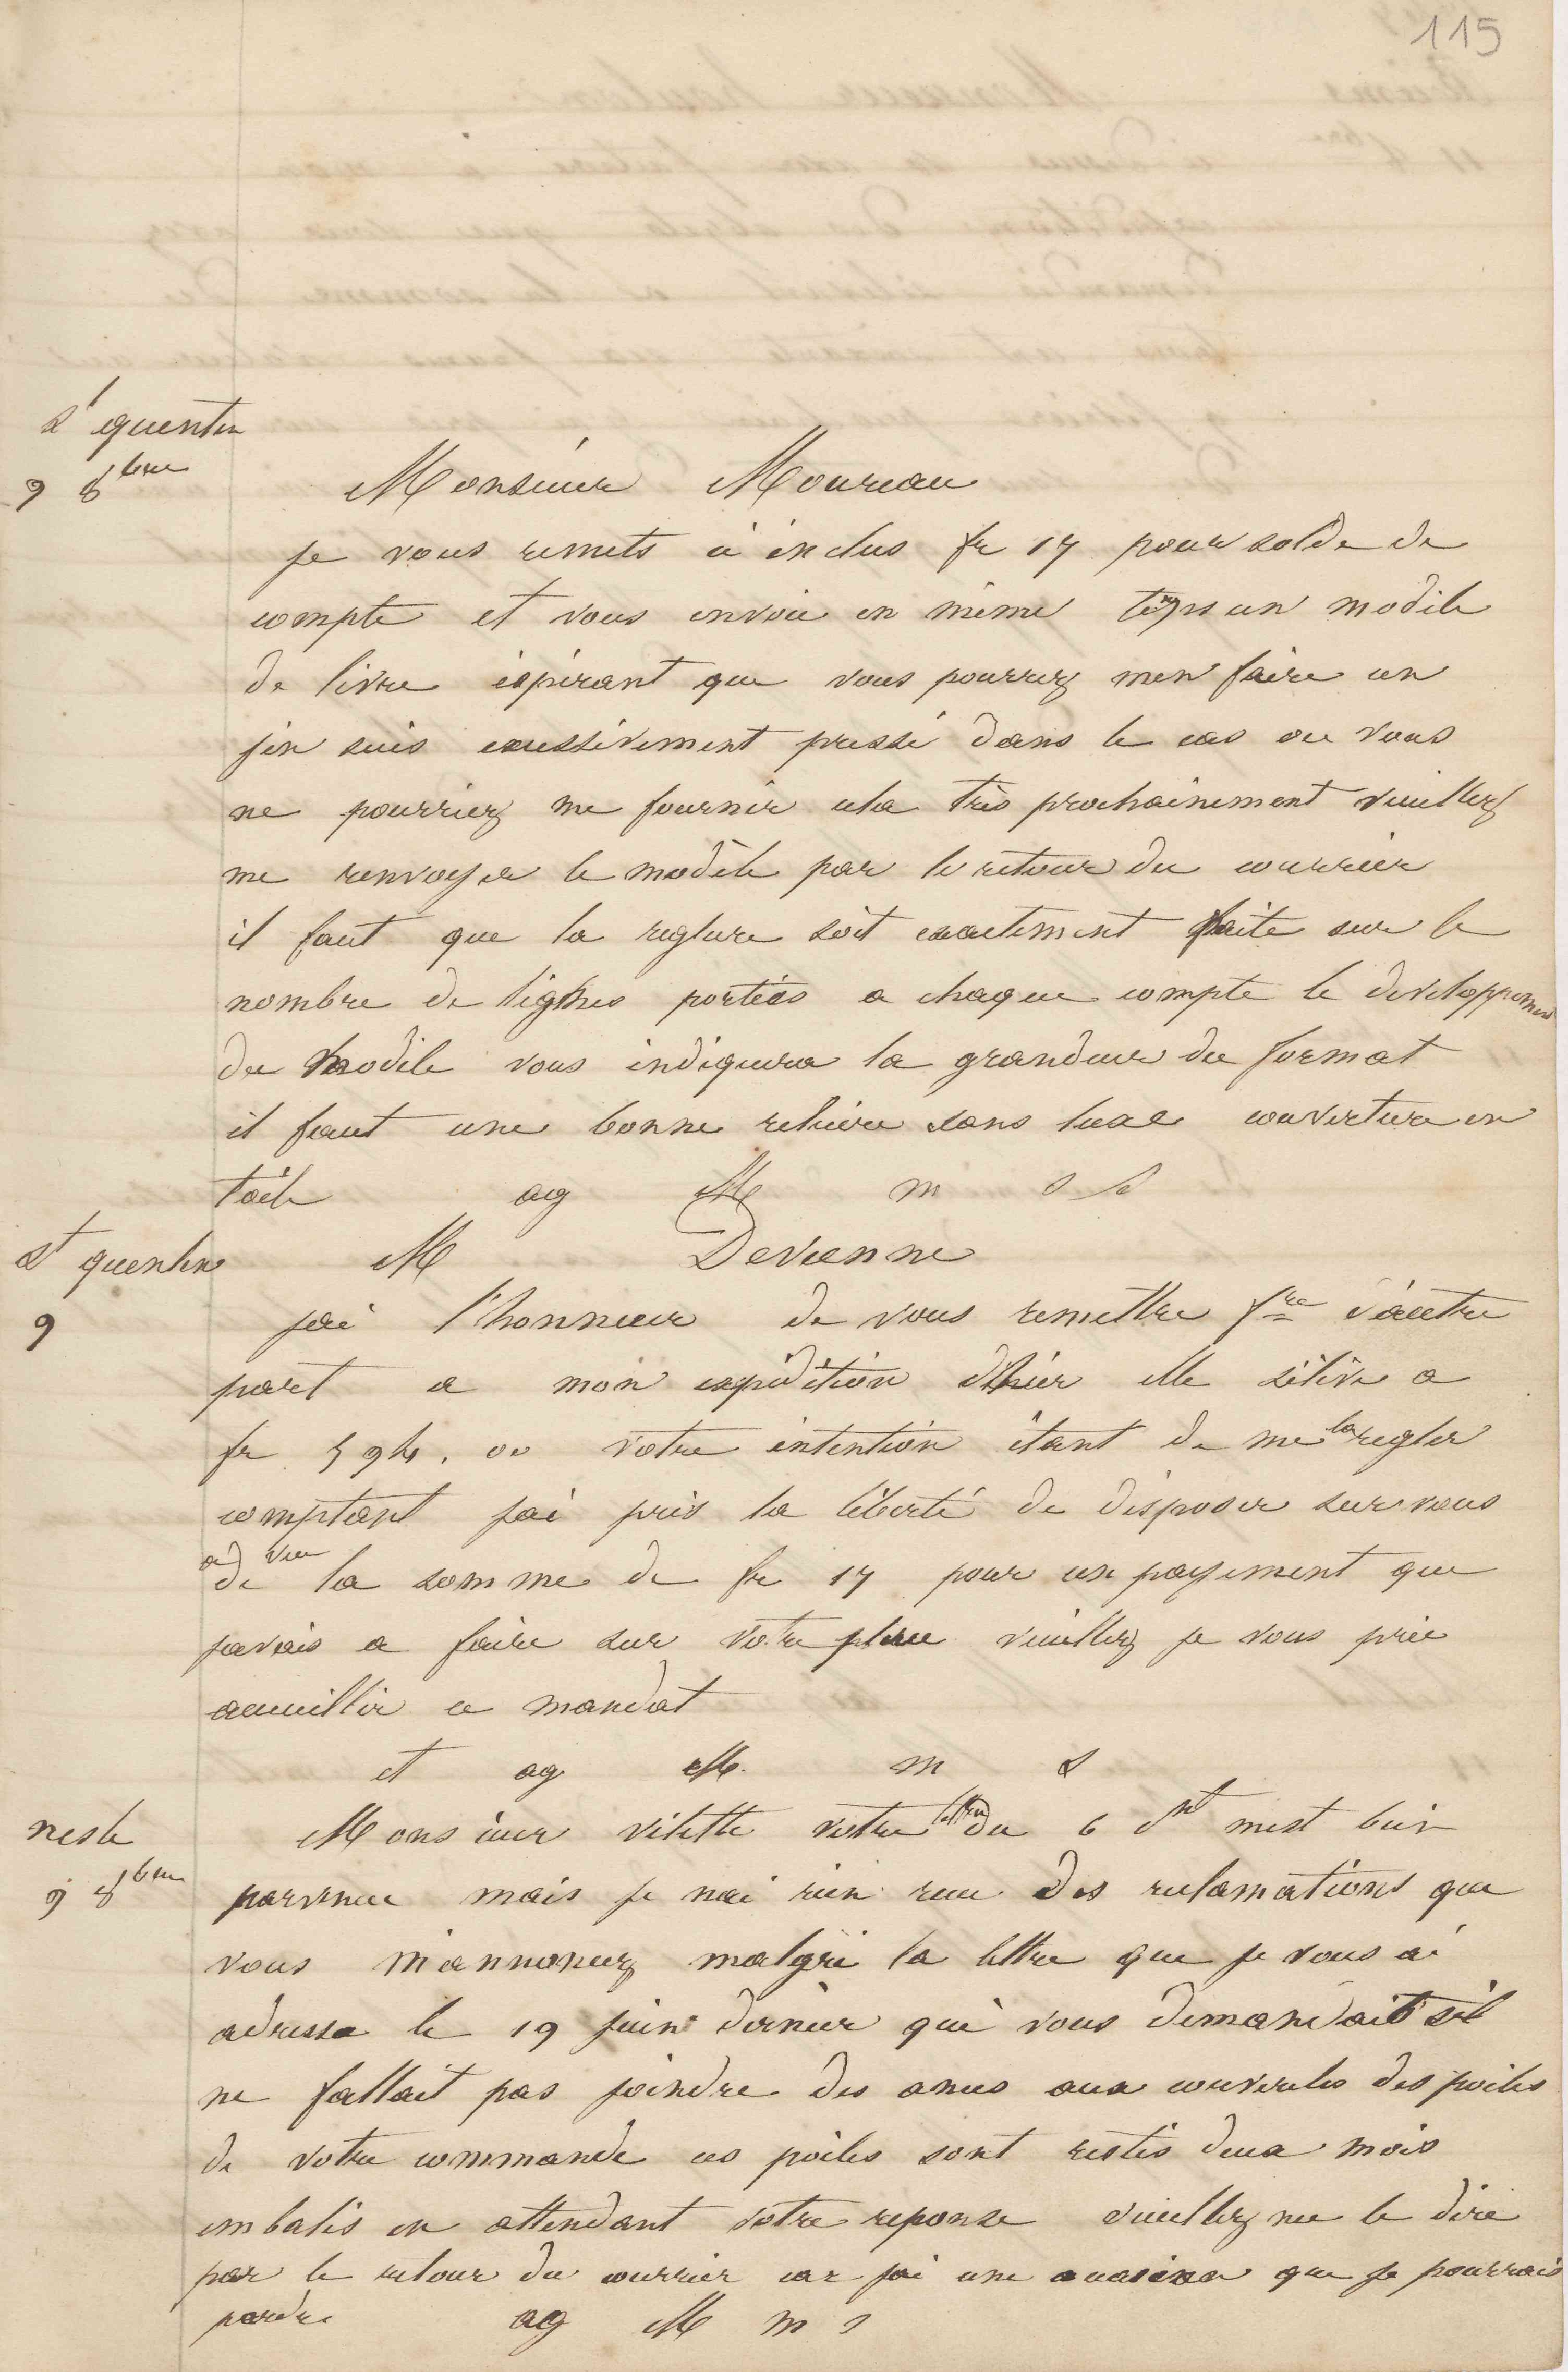 115
St quentin
9 8bre
Monsieur Moureau
je vous remets ci inclus fr 17 pour solde de
compte et vous envoie en même temps un modile
de livre éspérant que vous pourrez men faire un
jen suis excessivement pressé dans le cas ou vous
ne pourriez me fournir cela très prochainement veuillez
me renvoyer le modèle par le retour du courrier
il faut que la reglure soit exactement faite sur le
nombre de lignes portées a chaque compte le developpement
du modile vous indiquera la grandeur du format
il faut une bonne reliure sans luxe couverture en
toile ag M m s s
St quentin
9
M Devienne
jai l'honneur de vous remettre fre d'autre
part a mon expédition d'hier elle sélève a
fr 594. 00 votre intention étant de me la regler
comptant jai pris la liberté de disposer sur vous
a vue
de la somme de fr 17 pour un payement que
javais a faire sur votre place veuillez je vous prie
accueillir ce mandat
et ag M. m s
nesle
9 8bre
Monsieur vilette votre lettre du 6 ct mest bien
parvenue mais je nai rien reçu des reclamations que
vous m'annoncez malgré la lettre que je vous ai
adressé le 19 juin dernier qui vous demandait sil
ne fallait pas joindre des anes aux couvercles des poiles
de votre commande ces poiles sont restés deux mois
embalés en attendant votre reponse veuillez me le dire
par le retour du courrier car jai une ocasion que je pourrais
perdre ag M m s